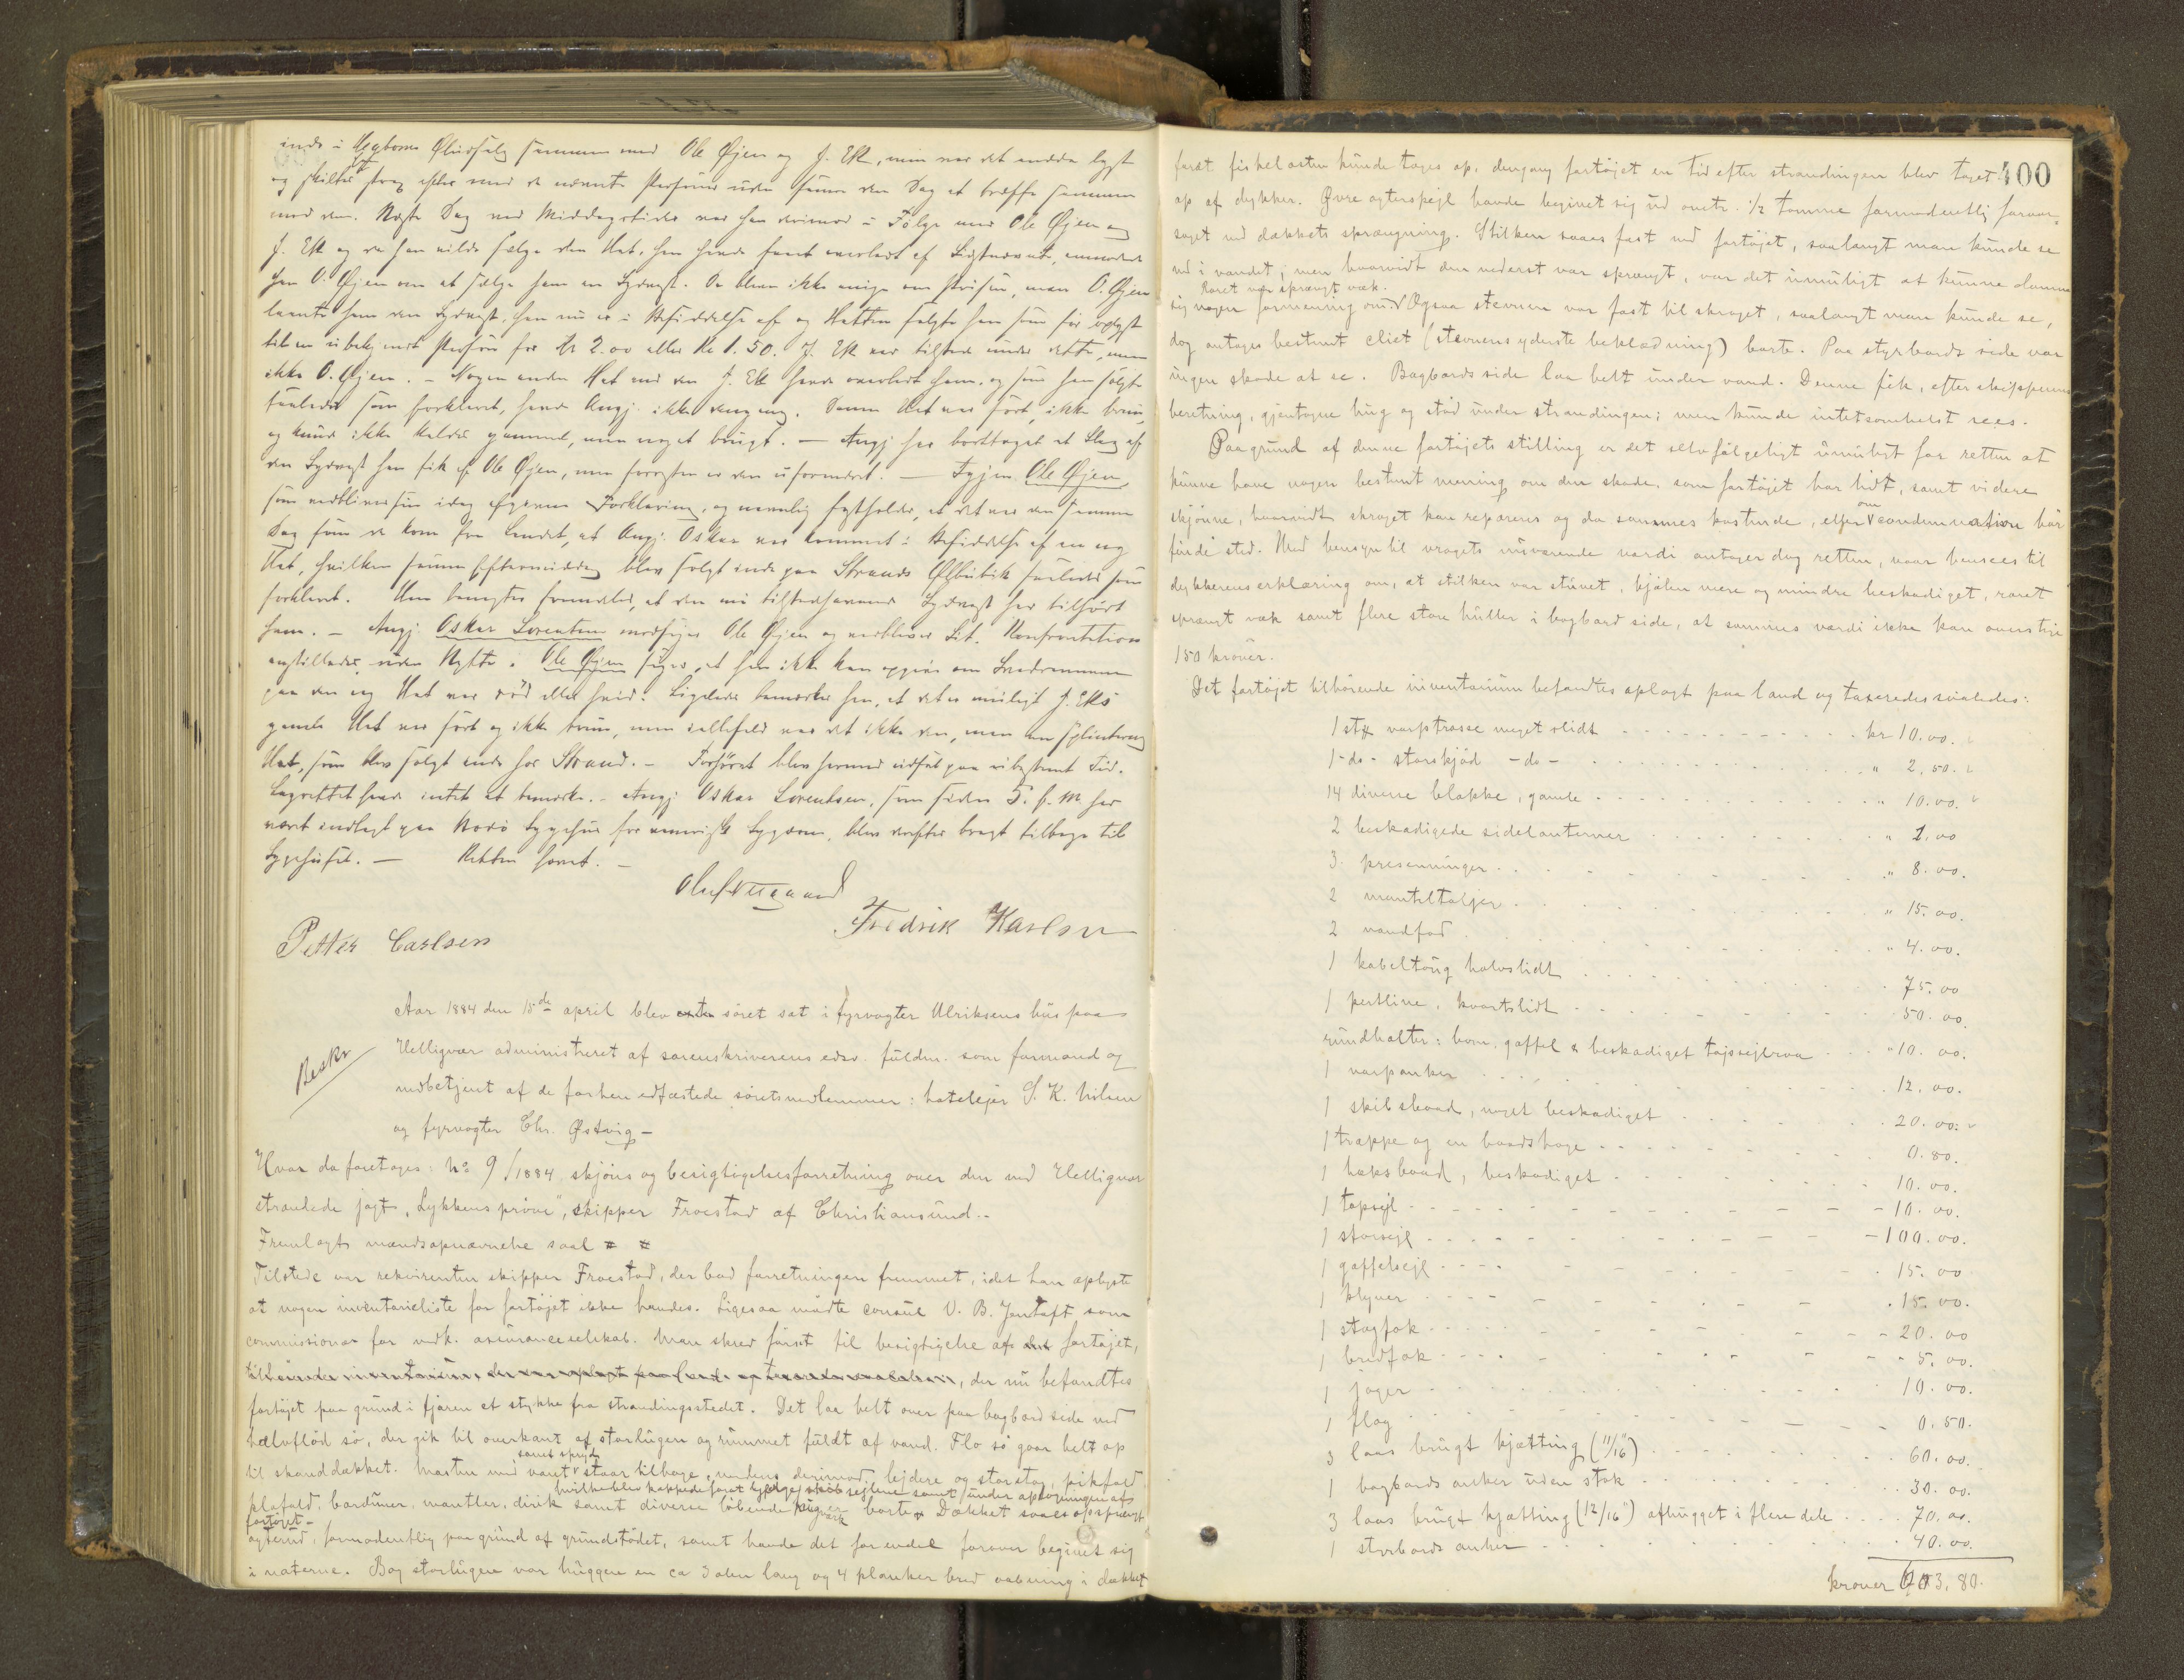 inde i Nyboms Øludsalg sammen med Ole Øjen og J. Ek, men var det endda lyst
og skiltes strax efter med de nævnte Personer uden senere den Dag at træffe sammen
med dem. Næste Dag ved Middagstider var han derimod i Følge med Ole Øjen og
J. Ek og da han vilde sælge den Hat, han havde faaet overladt af Sidstnævnte, anmodede
han O. Øjen om at sælge ham en Sydvest. De blev ikke enige om Prisen, men O. Øjen
laante ham den Sydvest, han nu er i Besiddelse af og Hatten solgte han som før oplyst
til en ubekjendt Person for Kr 2.00 eller Kr 1.50. J. Ek var tilstede under dette, men
ikke O. Øjen. – Nogen anden Hat end den J. Ek havde overladt ham, og som han solgte
saaledes som forklaret, havde Angj. ikke dengang. Denne Hat var sort, ikke brun,
og kunde ikke kaldes gammel, men noget brugt. – Angj. har borttaget et Slag af
den Sydvest han fik af Ole Øjen, men forresten er den uforandret. – Tyjen Ole Øjen,
som vedbliver sin idag afgivne Forklaring, og navnlig fastholder, at det var den samme
Dag som de kom fra Landet, at Angj. Oskar var kommet i Besiddelse af en ny
Hat, hvilken samme Eftermiddag blev solgt inde paa Strands Ølbutik saaledes som
forklaret. Han benegter fremdeles, at den nu tilstedeværende Sydvest har tilhørt
ham. – Angj. Oskar Lorentsen modsiger Ole Øjen og vedbliver Sit. Konfrontation
anstilledes uden Nytte. Ole Øjen siger, at han ikke kan opgive om Svedremmen
paa den ny Hat var rød eller hvid. Ligeledes bemærker han, at det er muligt J. Eks
gamle Hat var sort og ikke brun, men iallefald var det ikke den, men en splinterny
Hat, som blev solgt inde hos Strand. – Forhøret blev hermed udsat paa ubestemt Tid.
Lagrettet havde intet at bemærke. – Angj. Oskar Lorentsen, som siden 5. f. M. har
været indlagt paa Bodø Sygehus for venerisk Sygdom, blev derefter bragt tilbage til
Sygehuset. – Retten hævet. –
Petter Carlsen
Fredrik Karlsen
Aar 1884 den 15de april blev søret sat i fyrvogter Ulriksens hus paa
Beskr
Helligvær administreret af sorenskriverens edsv. fuldm. som formand og
medbetjent af de forhen edfæstede søretsmedlemmer: hotelejer S. K. Nilsen
og fyrvogter Chr. Østvig –
Hvor da foretoges: No 9/1884 skjøns og besigtigelsesforretning over den ved Helligvær
strandede jagt "Lykkens prøve", skipper Froestad af Christiansund. –
Fremlagts mændsopnævnelse saal # #
Tilstede var rekvirenten skipper Froestad, der bad forretningen fremmet, idet han oplyste
at nogen inventarieliste for fartøjet ikke havdes. Ligesaa mødte consul V. B. Jentoft som
commissionær for vedk. assuranceselskab. Man skred først til besigtigelse af fartøjet,
tilhørende inventarium, der var oplagt paa land og, der nu befandtes
fartøjet paa grund i fjæren et stykke fra strandingsstedet. Det laa helt over paa bagbord side med
halvflød sø, der gik til overkant af storlugen og rummet fuldt af vand. Flo sø gaar helt op
til skanddækket. Masten med vant staar tilbage, medens derimod lejdere og storstag, pikfald
samt spryd
hvilke blev kappede forat bjerge skib sejlene samt under optagningen af
klofald, barduner, mantler, dirik samt diverse løbende tougværk er borte Dækket saaes opsprængt
fartøjet –
agterud, formodentlig paa grund af grundstødet, samt havde det for endel forover begivet sig
i naterne. Bag storlugen var huggen en ca 3 alen lang og 4 planker bred aabning i dækket
400
forat fiskelasten kunde tages op, dengang fartøjet en tid efter strandingen blev taget
op af dykker. Øvre agterspejl havde begivet sig ud omtr. 1/2 tomme formodentlig foraar-
saget ved dækkets sprængning. Stilken saaes fast ved fartøjet, saalangt man kunde se
ned i vandet, men hvorvidt den nederst var sprængt, var det umuligt at kunne danne
Roret var sprængt væk.
sig nogen formening om Ogsaa stevnen var fast til skroget, saalangt man kunde se,
dog antages bestemt cliet (stevnens yderste beklædning) borte. Paa styrbords side var
ingen skade at se. Bagbords side laa helt under vand. Denne fik, efter skipperens
beretning, gjentagne hug og stød under strandingen; men kunde intetsomhelst sees.
Paagrund af denne fartøjets stilling er det selvfølgeligt umuligt for retten at
kunne have nogen bestemt mening om den skade, som fartøjet har lidt, samt videre
om
skjønne, hvorvidt skroget kan repareres og da sammes kostende, eller condemnation bør
finde sted. Med hensyn til vragets nuværende værdi antager dog retten, naar hensees til
dykkerens erklæring om, at stilken var stuvet, kjølen mere og mindre beskadiget, roret
sprængt væk samt flere store huller i bagbord side, at sammes værdi ikke kan overstige
150 kroner.
Det fartøjet tilhørende inventarium befandtes oplagt paa land og taxeredes saaledes:
1 stk varptrosse meget slidt . . . . kr 10.00.
1 - do - storskjød - do - . . . . " 2,50.
14 diverse blokke, gamle . . . . " 10.00.
2 beskadigede sidelanterner . . . . " 1.00
3 presenninger . . . . " 8.00.
2 manteltaljer . . . . " 15.00.
2 vandfad . . . . " 4.00.
1 kabeltoug halvslidt . . . . 75.00
1 pertline, kvartslidt . . . . 50.00.
rundholter: bom, gaffel & beskadiget topsejlraa . . . . " 10.00.
1 varpanker . . . . 12.00.
1 skibsbaad, noget beskadiget . . . . 20.00.
1 trappe og en baadshage . . . . 0.80.
1 hæksbaad, beskadiget . . . . 10.00.
1 topsejl . . . . 10.00.
1 storsejl . . . . 100.00.
1 gaffelsejl . . . . 15.00
1 klyver . . . . 15.00.
1 stagfok . . . . 20.00
1 bredfok . . . . 5.00.
1 jager . . . . 10.00.
1 flag . . . . 0.50.
3 laas brugt kjætting (11/16") . . . . 60.00.
1 bagbords anker uden stok . . . . 30.00.
3 laas brugt kjætting (12/16") afhugget i flere dele . . . . 70.00.
1 styrbords anker . . . . 40.00.
kroner 603,80.